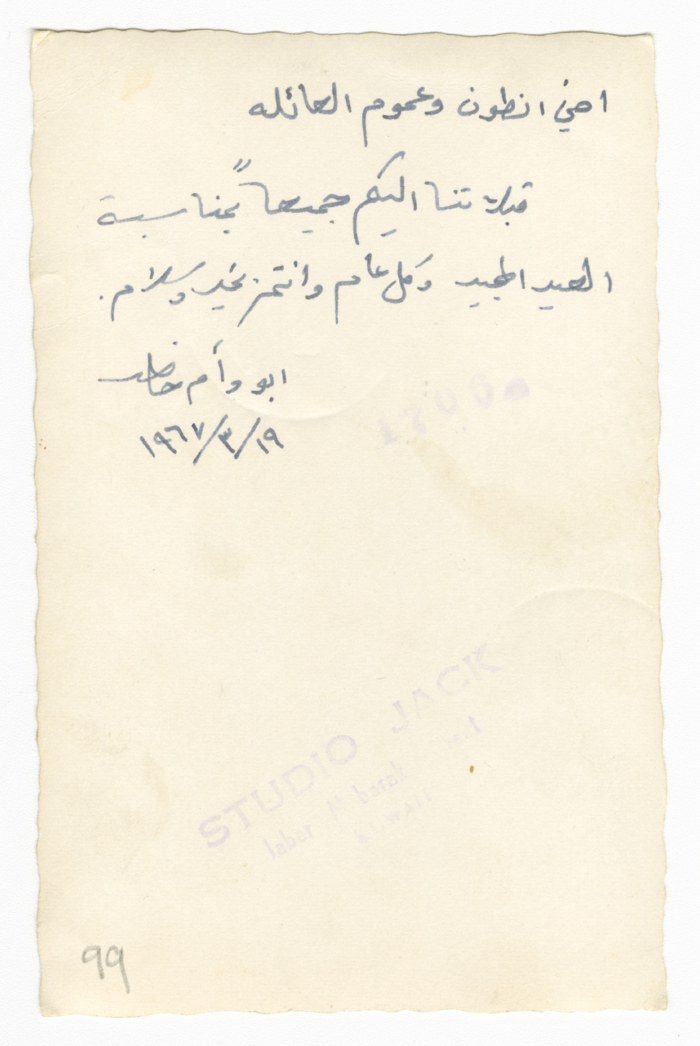 اخي انطون وعموم العائله
قبلاتنا اليكم جميعاً بمناسبة
العيد المجيد وكل عام وانتم بخير وسلام.
ابو وأم
١٩٦٧/٣/١٩
STUDIO JACK
Jaber barak
KUWAIT
99